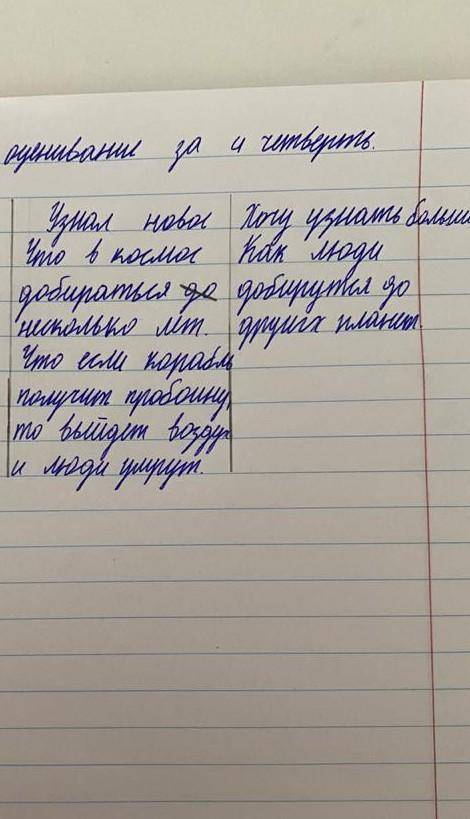 оценивание за 4 четверть.
Узнал новое
Что в космос
добираться до
несколько лет.
Что если корабль
получит пробоину,
то выйдет воздух
и люди умрут.
Хочу узнать больше
Как люди
доберутся до
других планет.